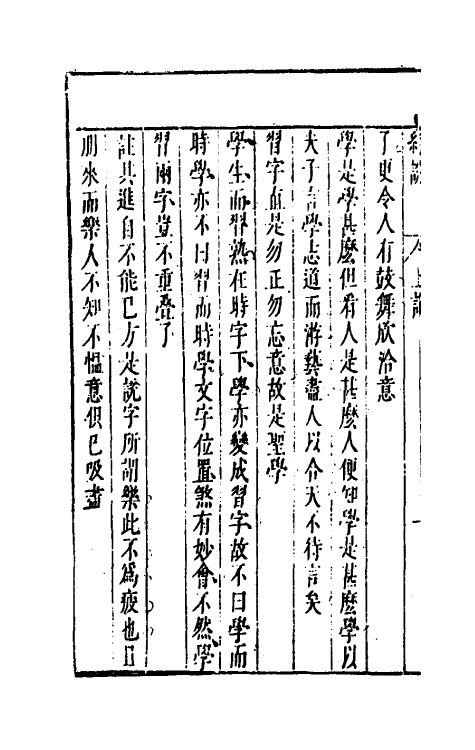 了更令人有鼓舞欣洽意
學是學甚麽但看人是甚麽人便知學是甚麽學以
夫子言學志道而游藝盡人以合天不待言矣
習字直是勿正勿忘意故是聖學
學生而習熟在時字下學亦變成習字故不曰學而
時學亦不曰習而時學文字位置煞有妙會不然學
習兩字豈不重疊了
註其進自不能已方是說字所謂樂此不爲疲也且
朋來而樂人不知不慍意俱已吸盡